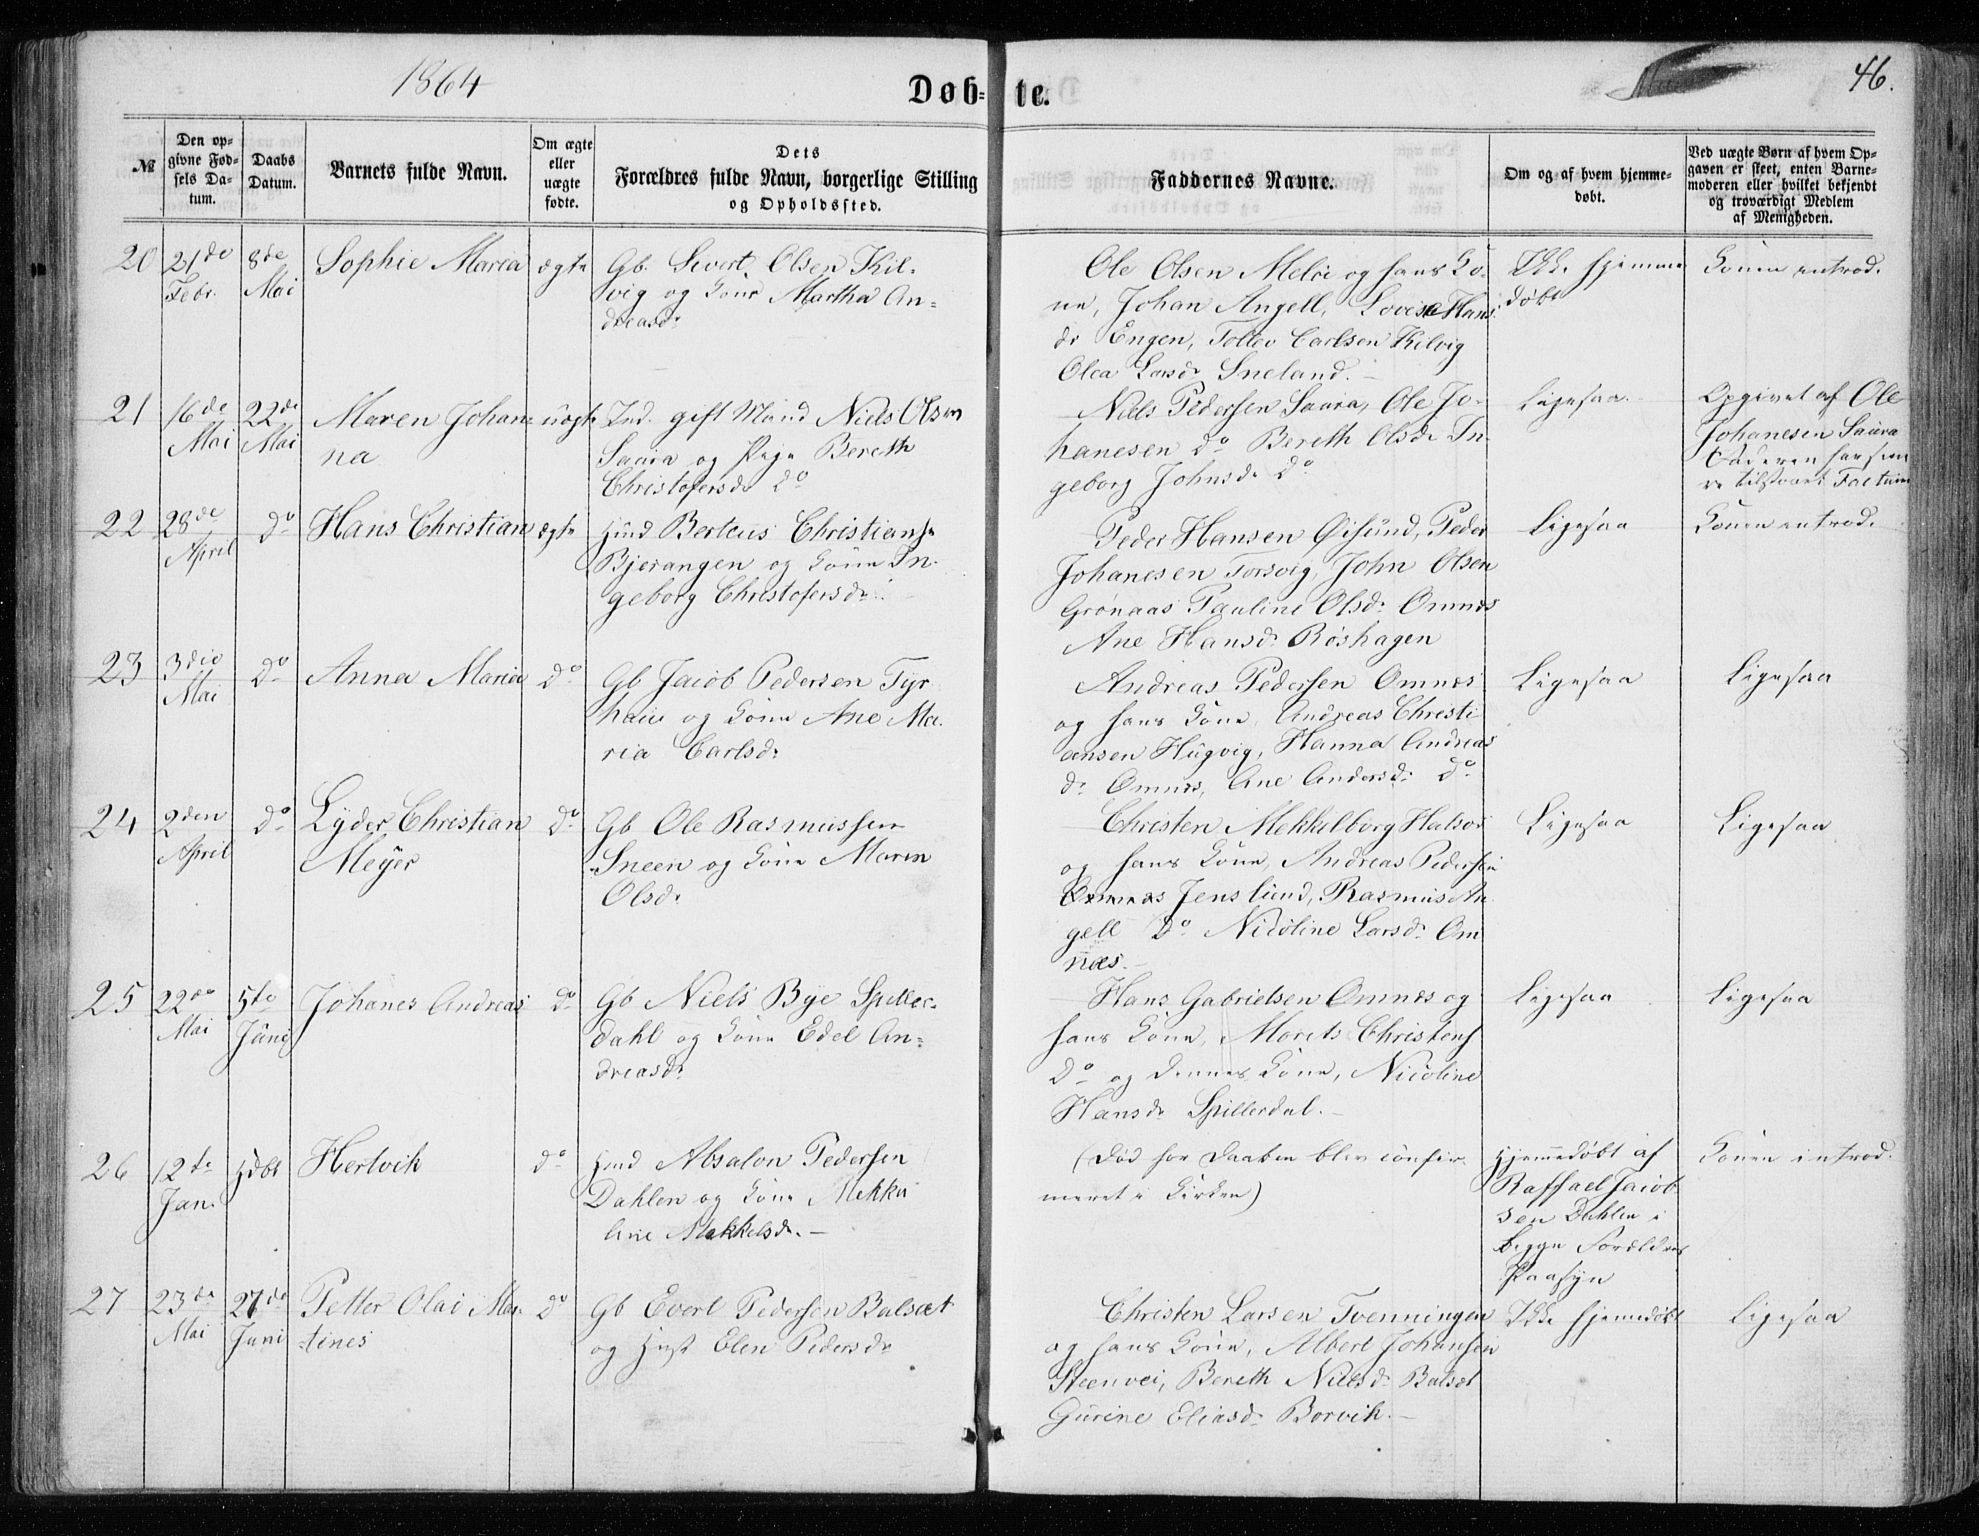 1864
Døb-te.
46.
№
Den op-
givne Fød-
sels Da-
tum.
Daabs
Datum.
Barnets fulde Navn.
Om ægte
eller
uægte
fødte.
Dets
Forældres fulde Navn, borgerlige Stilling
og Opholdssted.
Faddernes Navne.
Om og af hvem hjemme-
døbt.
Ved uægte Børn af hvem Op-
gaven er skeet, enten Barne-
moderen eller hvilket bekjendt
og troværdigt Medlem
af Menigheden.
20
21de
Febr.
8de
Mai
Sophie Maria
ægte
Gb. Sivert Olsen Kil-
vig og Kone Martha An-
dreasdr
Ole Olsen Meløe og hans Ko-
ne, Johan Angell, Lovise Hans
dr Engen, Tollev Carlsen Kilvig
Olea Larsdr Sneland.
Ikke hjemme
døbt
Konen introd.
21
16de
Mai
22de
Mai
Maren Johan-
na
uægte
Ind. gift Mand Niels Olsen
Saura og Pige Bereth
Christofersdr do
Niels Pedersen Saura, Ole Jo-
hanesen do Bereth Olsdr In-
geborg Johnsdr do
Ligesaa.
Opgivet af Ole
Johanesen Saura
Factum
22
28de
April
do
Hans Christian
ægte
Huusd Berteus Christians.
Bjerangen og Kone In-
geborg Christofersdr
Peder Hansen Øisund, Peder
Johanesen Torsvig, John Olsen
Grønaas Pauline Olsdr Omnes
Ane Hansdr Røshagen
Ligesaa
Konen introd.
23
3die
Mai
do
Anna Maria
do
Gb Jacob Pedersen Tyr
haug og Kone Ane Ma-
ria Carlsdr
Andreas Pedersen Omnes
og hans Kone, Andreas Christi
ansen Hugvig, Hanna Andreas
dr Omnes, Ane Andersdr do
Ligesaa
Ligesaa
24
2den
April
do
Lyder Christian
Meyer
do
Gb Ole Rasmussen
Sneen og Kone Maren
Olsdr
Christen Mekkelborg Halsos
og hans Kone, Andreas Pedersen
Omnes Jens Lund, Rasmus An
gell do Nicoline Larsdr Om
næs.
Ligesaa
Ligesaa
25
22de
Mai
5te
Juni
Johanes Andreas
do
Gb Niels Bye Spiller-
dahl og Kone Edel An-
dreasdr
Hans Gabrielsen Omnes og
hans Kone, Morets Christens
do og dennes Kone, Nicoline
Hansdr Spillerdal.
Ligesaa
Ligesaa
26
12te
Jan.
Hdbt
Hertvik
do
Huusd Absalon Pedersen
Dahlen og Kone Mekka
line Mekkelsdr.
(Død før Daaben blev confir
meret i Kirken)
Hjemmedøbt af
Raffael Jacob
sen Dahlen i
begge Forældres
Paasyn
Konen introd.
27
23de
Mai
27de
Juni
Petter Olai Mar-
tines
do
Gb Evert Pedersen Balsæt
og Hust Elen Pedersdr
Christen Larsen Tvenningen
og hans Kone, Albert Johansen
Steenvei, Bereth Nielsdr Balset
Gurine Eliasdr Borvik.
Ikke hjemmedøbt
Ligesaa